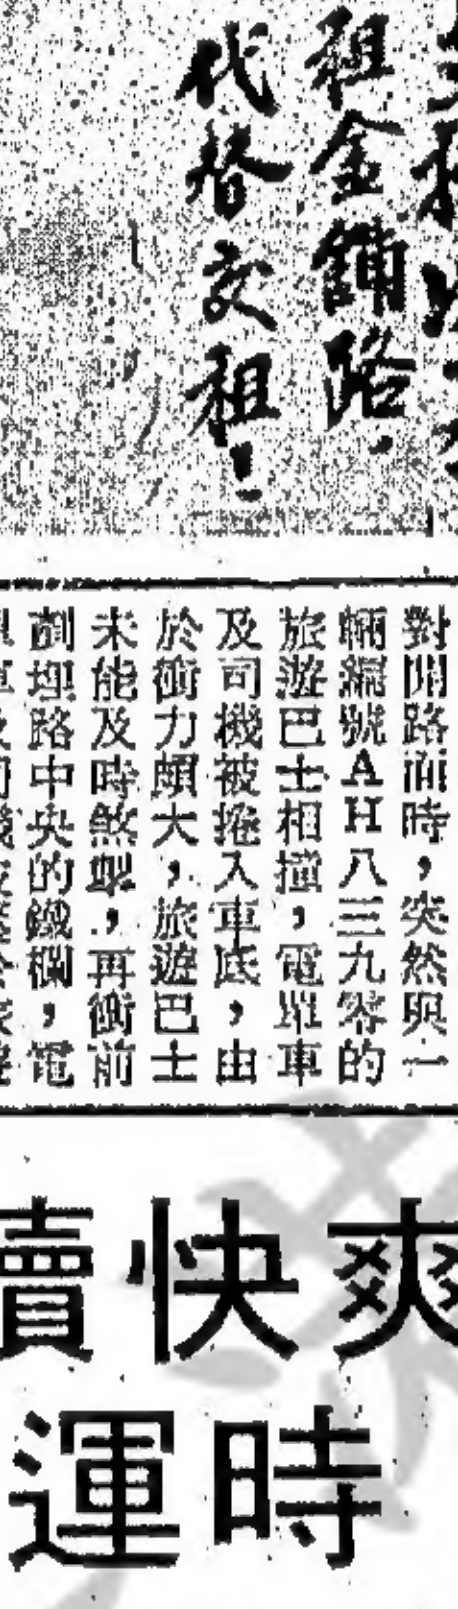 租金舖路.
代替交租!!
對開路面時，突然與一
輛編號AH八三九零的
旅遊巴士相撞，電單車
及司機被捲入車底，由
於衝力頗大，旅遊巴士
未能及時煞掣，再衝前
剷埋路中央的鐵欄，電
爽快賣
時運